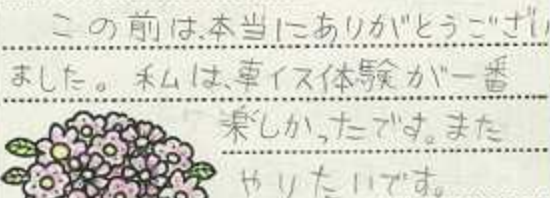 この前は、本当にありがとうござい
ました。私は、車イス体験が一番
楽しかったです。また
やりたいです。